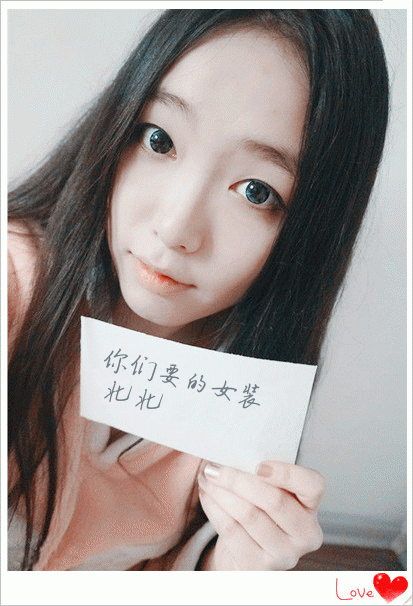 你们要的女装
北北
Love